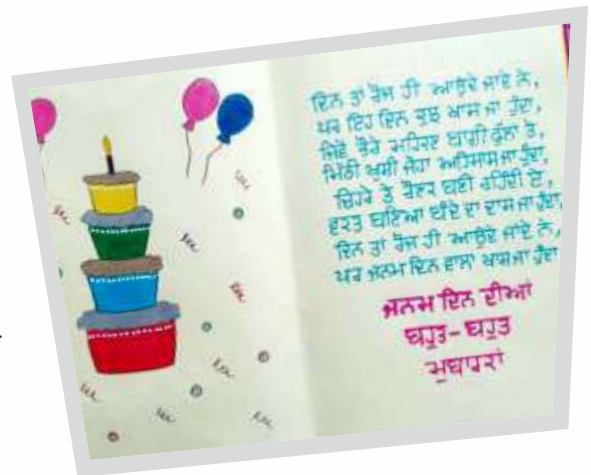 ਦਿਨ ਤਾਂ ਰੋਜ਼ ਹੀ ਆਉਂਦੇ ਜਾਂਦੇ ਨੇ,
ਪਰ ਇਹ ਦਿਨ ਕੁਝ ਖਾਸ ਜਾ ਹੁੰਦਾ,
ਜਿਵੇਂ ਭੌਰੇ ਮਹਿਕਣ ਬਾਗੀ ਫੁੱਲਾਂ ਤੇ,
ਮਿੱਠੀ ਖੁਸ਼ੀ ਜੇਹਾ ਅਹਿਸਾਸ ਜਾ ਹੁੰਦਾ,
ਚਿਹਰੇ ਤੇ ਰੌਣਕ ਬਣੀ ਰਹਿੰਦੀ ਏ,
ਵਕਤ ਬਣਿਆ ਬੰਦੇ ਦਾ ਦਾਸ ਜਾ ਹੁੰਦਾ,
ਦਿਨ ਤਾਂ ਰੋਜ਼ ਹੀ ਆਉਂਦੇ ਜਾਂਦੇ ਨੇ,
ਪਰ ਜਨਮ ਦਿਨ ਵਾਲਾ ਖਾਸ ਜਾ ਹੁੰਦਾ
ਜਨਮ ਦਿਨ ਦੀਆਂ
ਬਹੁਤ-ਬਹੁਤ
ਮੁਬਾਰਕਾਂ